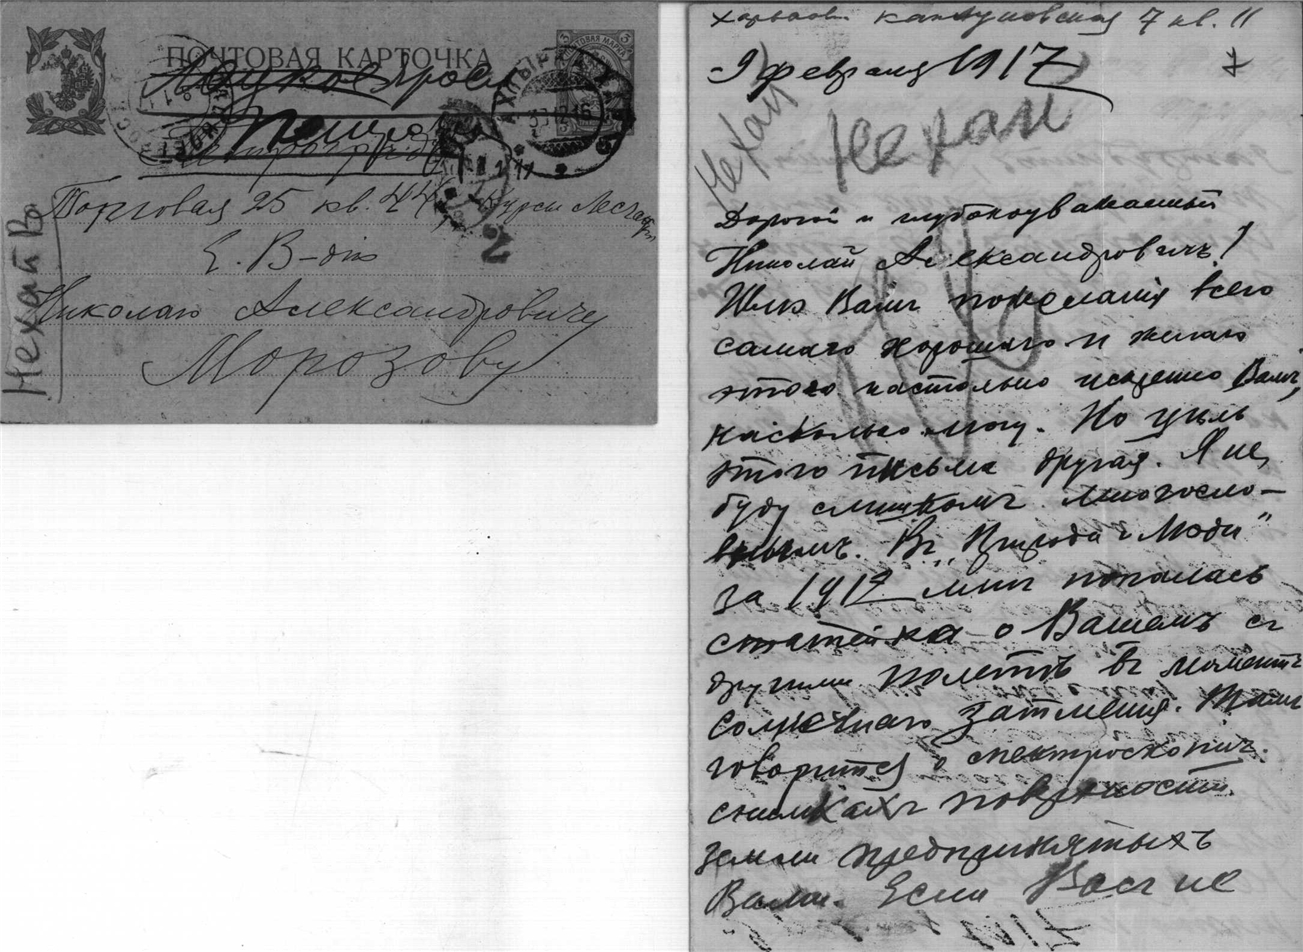 ПОЧТОВАЯ КАРТОЧКА
Торговая 25 кв. 44
Е. В-дію
Николаю Александровичу
Морозову
Нехай В
Харьковъ 7 кв. 11
9 февраля 1917
Нехай
Нехай
Дорогой и глубокоуважаемый
Николай Александровичъ!
Шлю Вамъ пожеланія всего
самаго хорошаго и желаю
этого настолько искренно Вамъ,
насколько могу. Но цѣль
этого письма другая. Я не
буду слишкомъ многосло-
внымъ. Въ „Природа и Люди"
за 1917 мнѣ попалась
статейка о Вашемъ съ
другими полетѣ въ моментъ
солнечнаго затменія. Тамъ
говорится о спектроскопич.
снимкахъ поверхности
земли предпринятыхъ
Вами. Если Васъ не